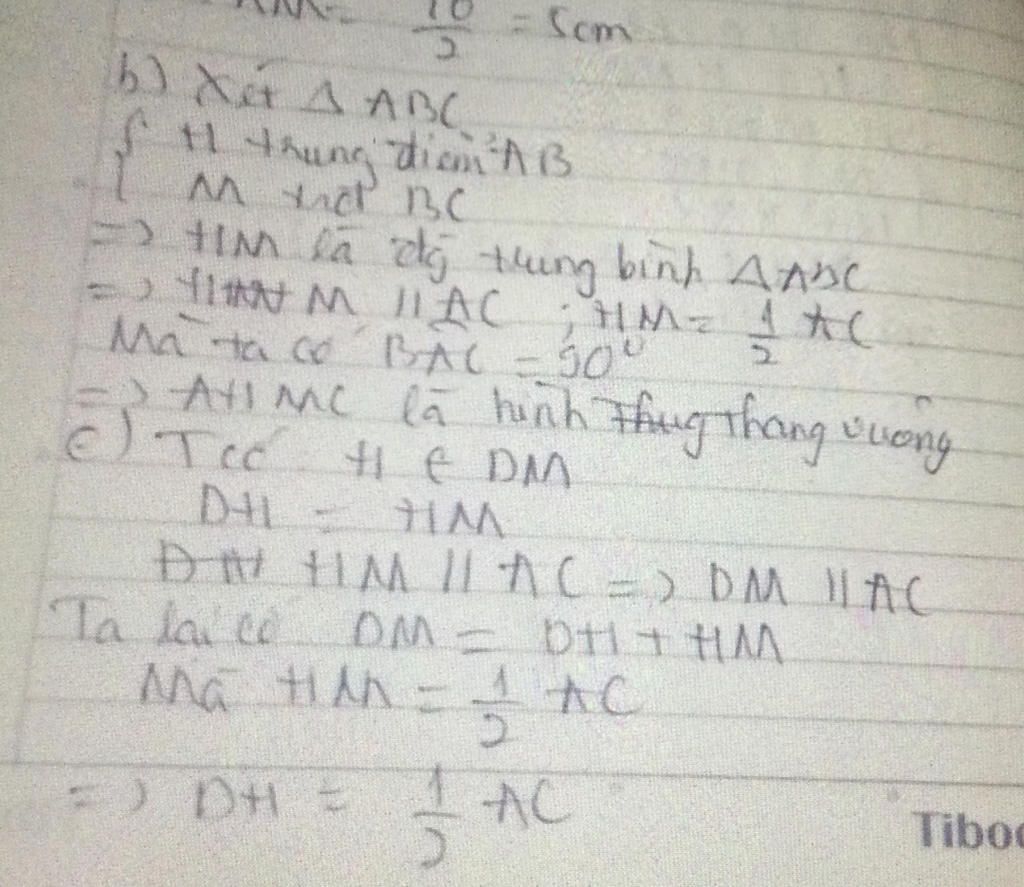 AM = 10/2 = 5cm
b) Xét Δ ABC
{ H trung điểm AB
M trđ BC
=> HM là đg trung bình Δ ABC
=> H M // AC ; HM = 1/2 AC
Mà ta có BAC = 90°
=> AHMC là hình thang vuông
c) Tcó H ∈ DM
DH = HM
HM // AC => DM // AC
Ta lại có DM = DH + HM
Mà HM = 1/2 AC
=> DH = 1/2 AC
Tiboo